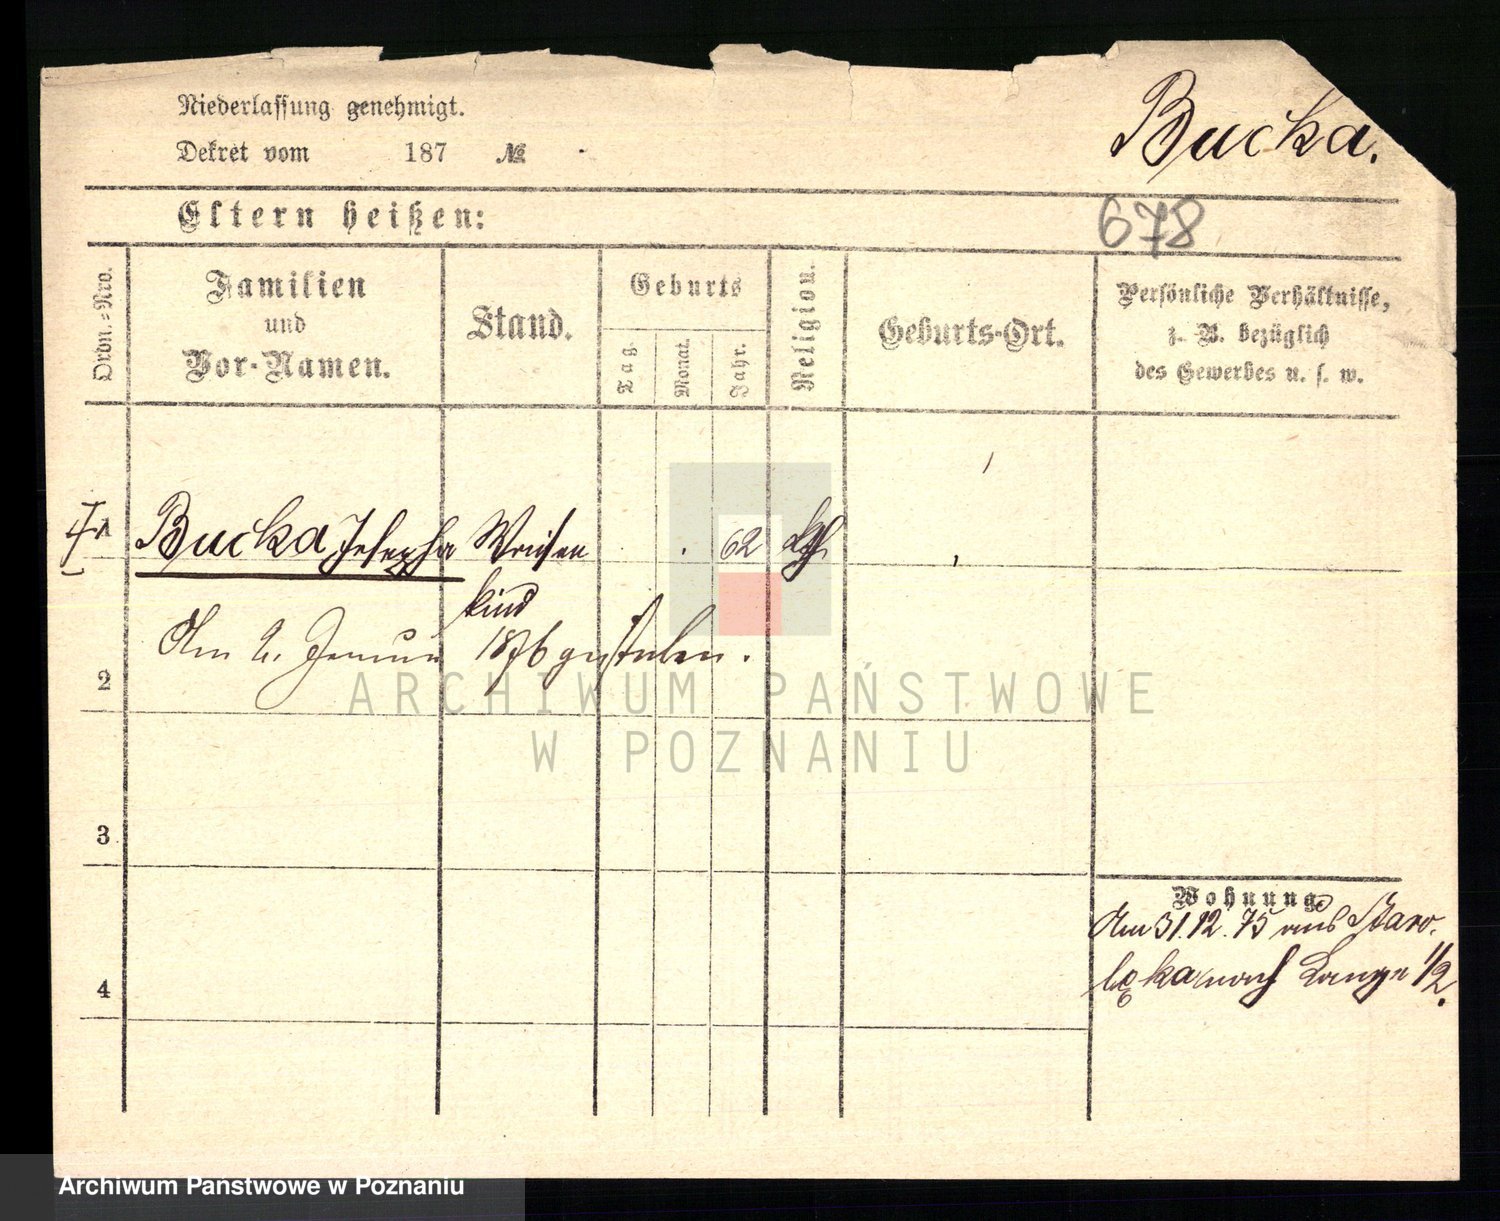 Niederlassung genehmigt.
Dekret vom 187 №
Bucka.
Eltern heißen:
678
Ordn.=Nro.
Familien
und
Vor-Namen.
Stand.
Geburts
Tag.
Monat.
Jahr.
Religion.
Geburts-Ort.
Persönliche Verhältnisse,
z. B. bezüglich
des Gewerbes u. s. w.
1 Bucka, Josepha Waisen 62 kth.
kind
Am 2. Januar 1876 gestorben.
2
ARCHIWUM PAŃSTWOWE
W POZNANIU
3
Wohnung
Am 31.12.75 aus Staro-
lęka nach Lange 1/2.
4
Archiwum Państwowe w Poznaniu